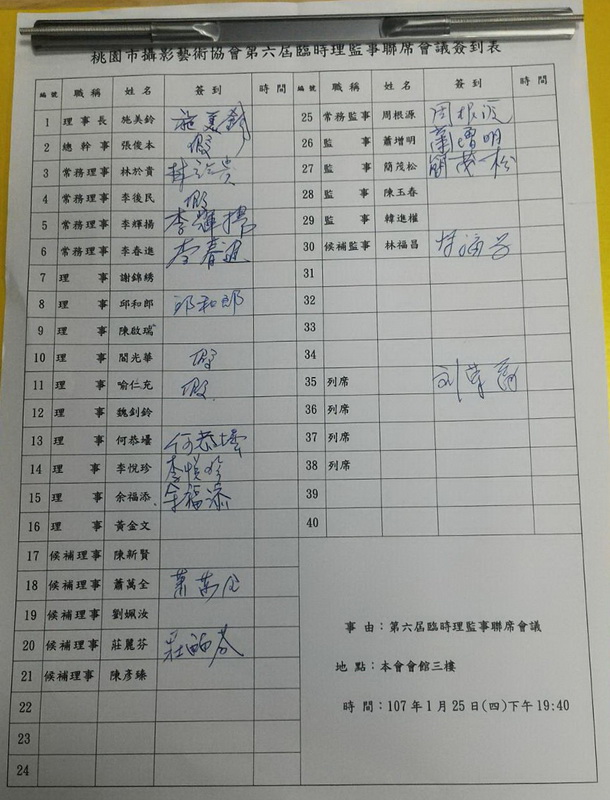 桃園市攝影藝術協會第六屆臨時理監事聯席會議簽到表
編號 職稱 姓名 簽到 時間
1 理事長 施美鈴 施美鈴
2 總幹事 張俊本 假
3 常務理事 林於貴 林於貴
4 常務理事 李後民 假
5 常務理事 李輝揚 李輝揚
6 常務理事 李春進 李春進
7 理事 謝錦綉
8 理事 邱和郎 邱和郎
9 理事 陳啟瑞
10 理事 閻光華 假
11 理事 喻仁充 假
12 理事 魏釗鈴
13 理事 何恭壜 何恭壜
14 理事 李悅珍 李悅珍
15 理事 余福添 余福添
16 理事 黃金文
17 候補理事 陳新賢
18 候補理事 蕭萬全 萧萬全
19 候補理事 劉姵汝
20 候補理事 莊麗芬 莊麗芬
21 候補理事 陳彥臻
22
23
24
編號 職稱 姓名 簽到 時間
25 常務監事 周根源 周根源
26 監事 蕭增明 蕭增明
27 監事 簡茂松 簡茂松
28 監事 陳玉春
29 監事 韓進權
30 候補監事 林福昌 林福昌
31
32
33
34
35 列席
36 列席
37 列席
38 列席
39
40
事由:第六屆臨時理監事聯席會議
地點:本會會館三樓
時間:107年1月25日(四)下午19:40